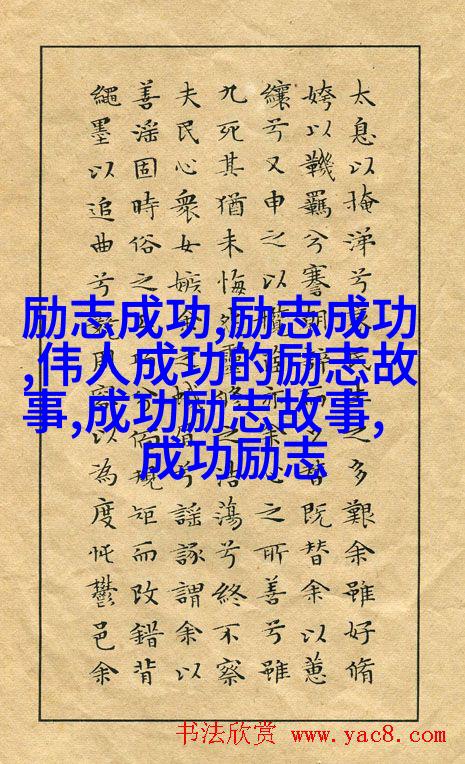 太息以掩涕兮民生之多艱余雖好脩
姱以鞿羈兮謇朝誶而夕替既替余以蕙
纕兮又申之以亦余心之所善兮雖
九死其猶未悔怨靈脩之浩蕩兮終不察
夫民心衆女嫉余兮謠諑謂余以
善淫固時俗之偭規矩而改錯背
繩墨以追曲兮競周容以為度忳鬱邑余
励志成功,励志成功
,伟人成功的励志故
事,成功励志故事,
成功励志
书法欣赏 www.yac8.com